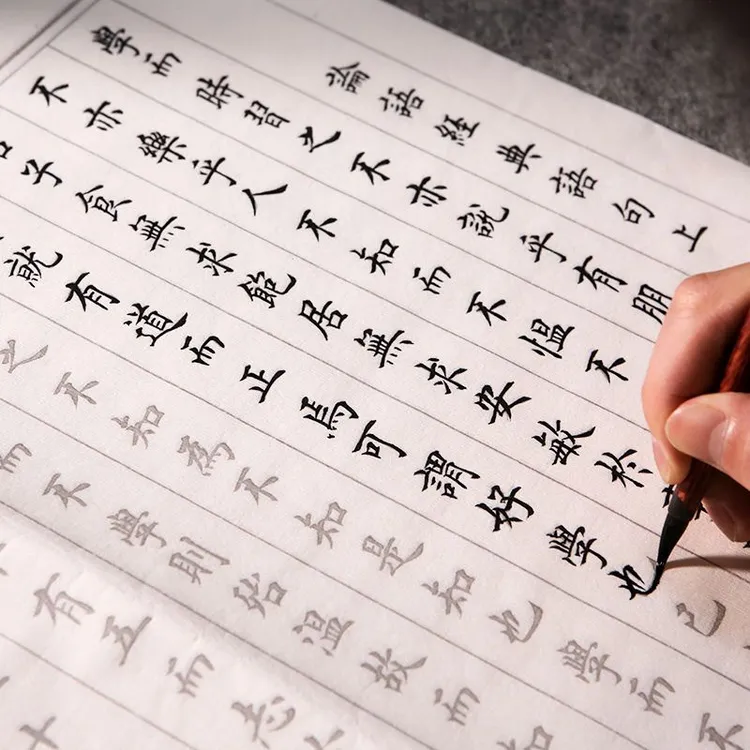 論語經典語句上
學而時習之不亦說乎有朋
不亦樂乎人不知而不愠不
子食無求飽居無求安敏於
就有道而正焉可謂好學也已
之不知為不知是知也學而不
而不學則殆溫故而知
有五而志
十